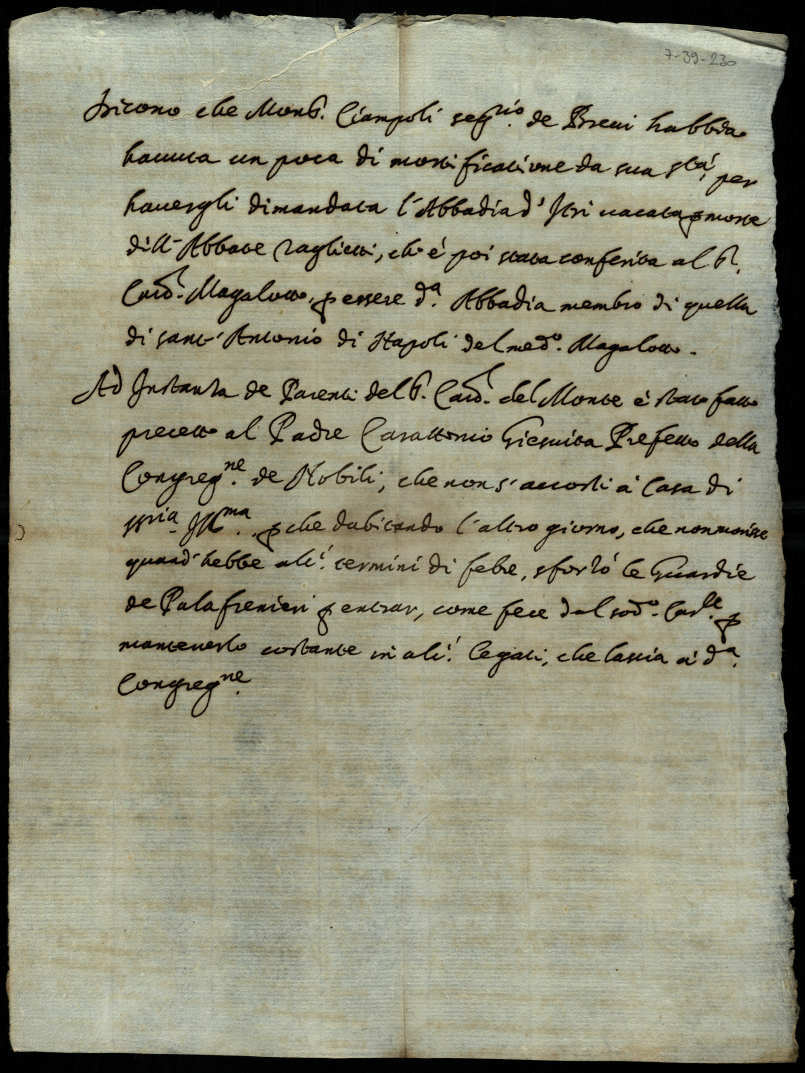 7-39-230
Dicono che Mons.r Ciampoli seg.rio de Breui habbia
hauuta un poca di mortificatione da sua S.tà, per
hauergli dimandata l'Abbadia d'Itri uacata per morte
dell'Abbate Raglietti, ch'è poi stata conferita al S.r
Card.l Magalotto, per essere d.a Abbadia membro di quella
di sant'Antonio di Napoli del med.o Magalotto.
Ad Instanza de Parenti del S.r Card.l del Monte è stato fatto
precetto al Padre Carattonio Giesuita Prefetto della
Congreg.ne de Nobili, che non s'accosti à Casa di
SS.ria Ill.ma perche dubitando l'altro giorno, che non morisse
quand'hebbe alc.i termini di febre, sforzò le Guardie
de Palafrenieri per entrar, come fece dal sod.o Car.le per
mantenerlo costante in alc.i legati, che lascia à d.a
Congreg.ne